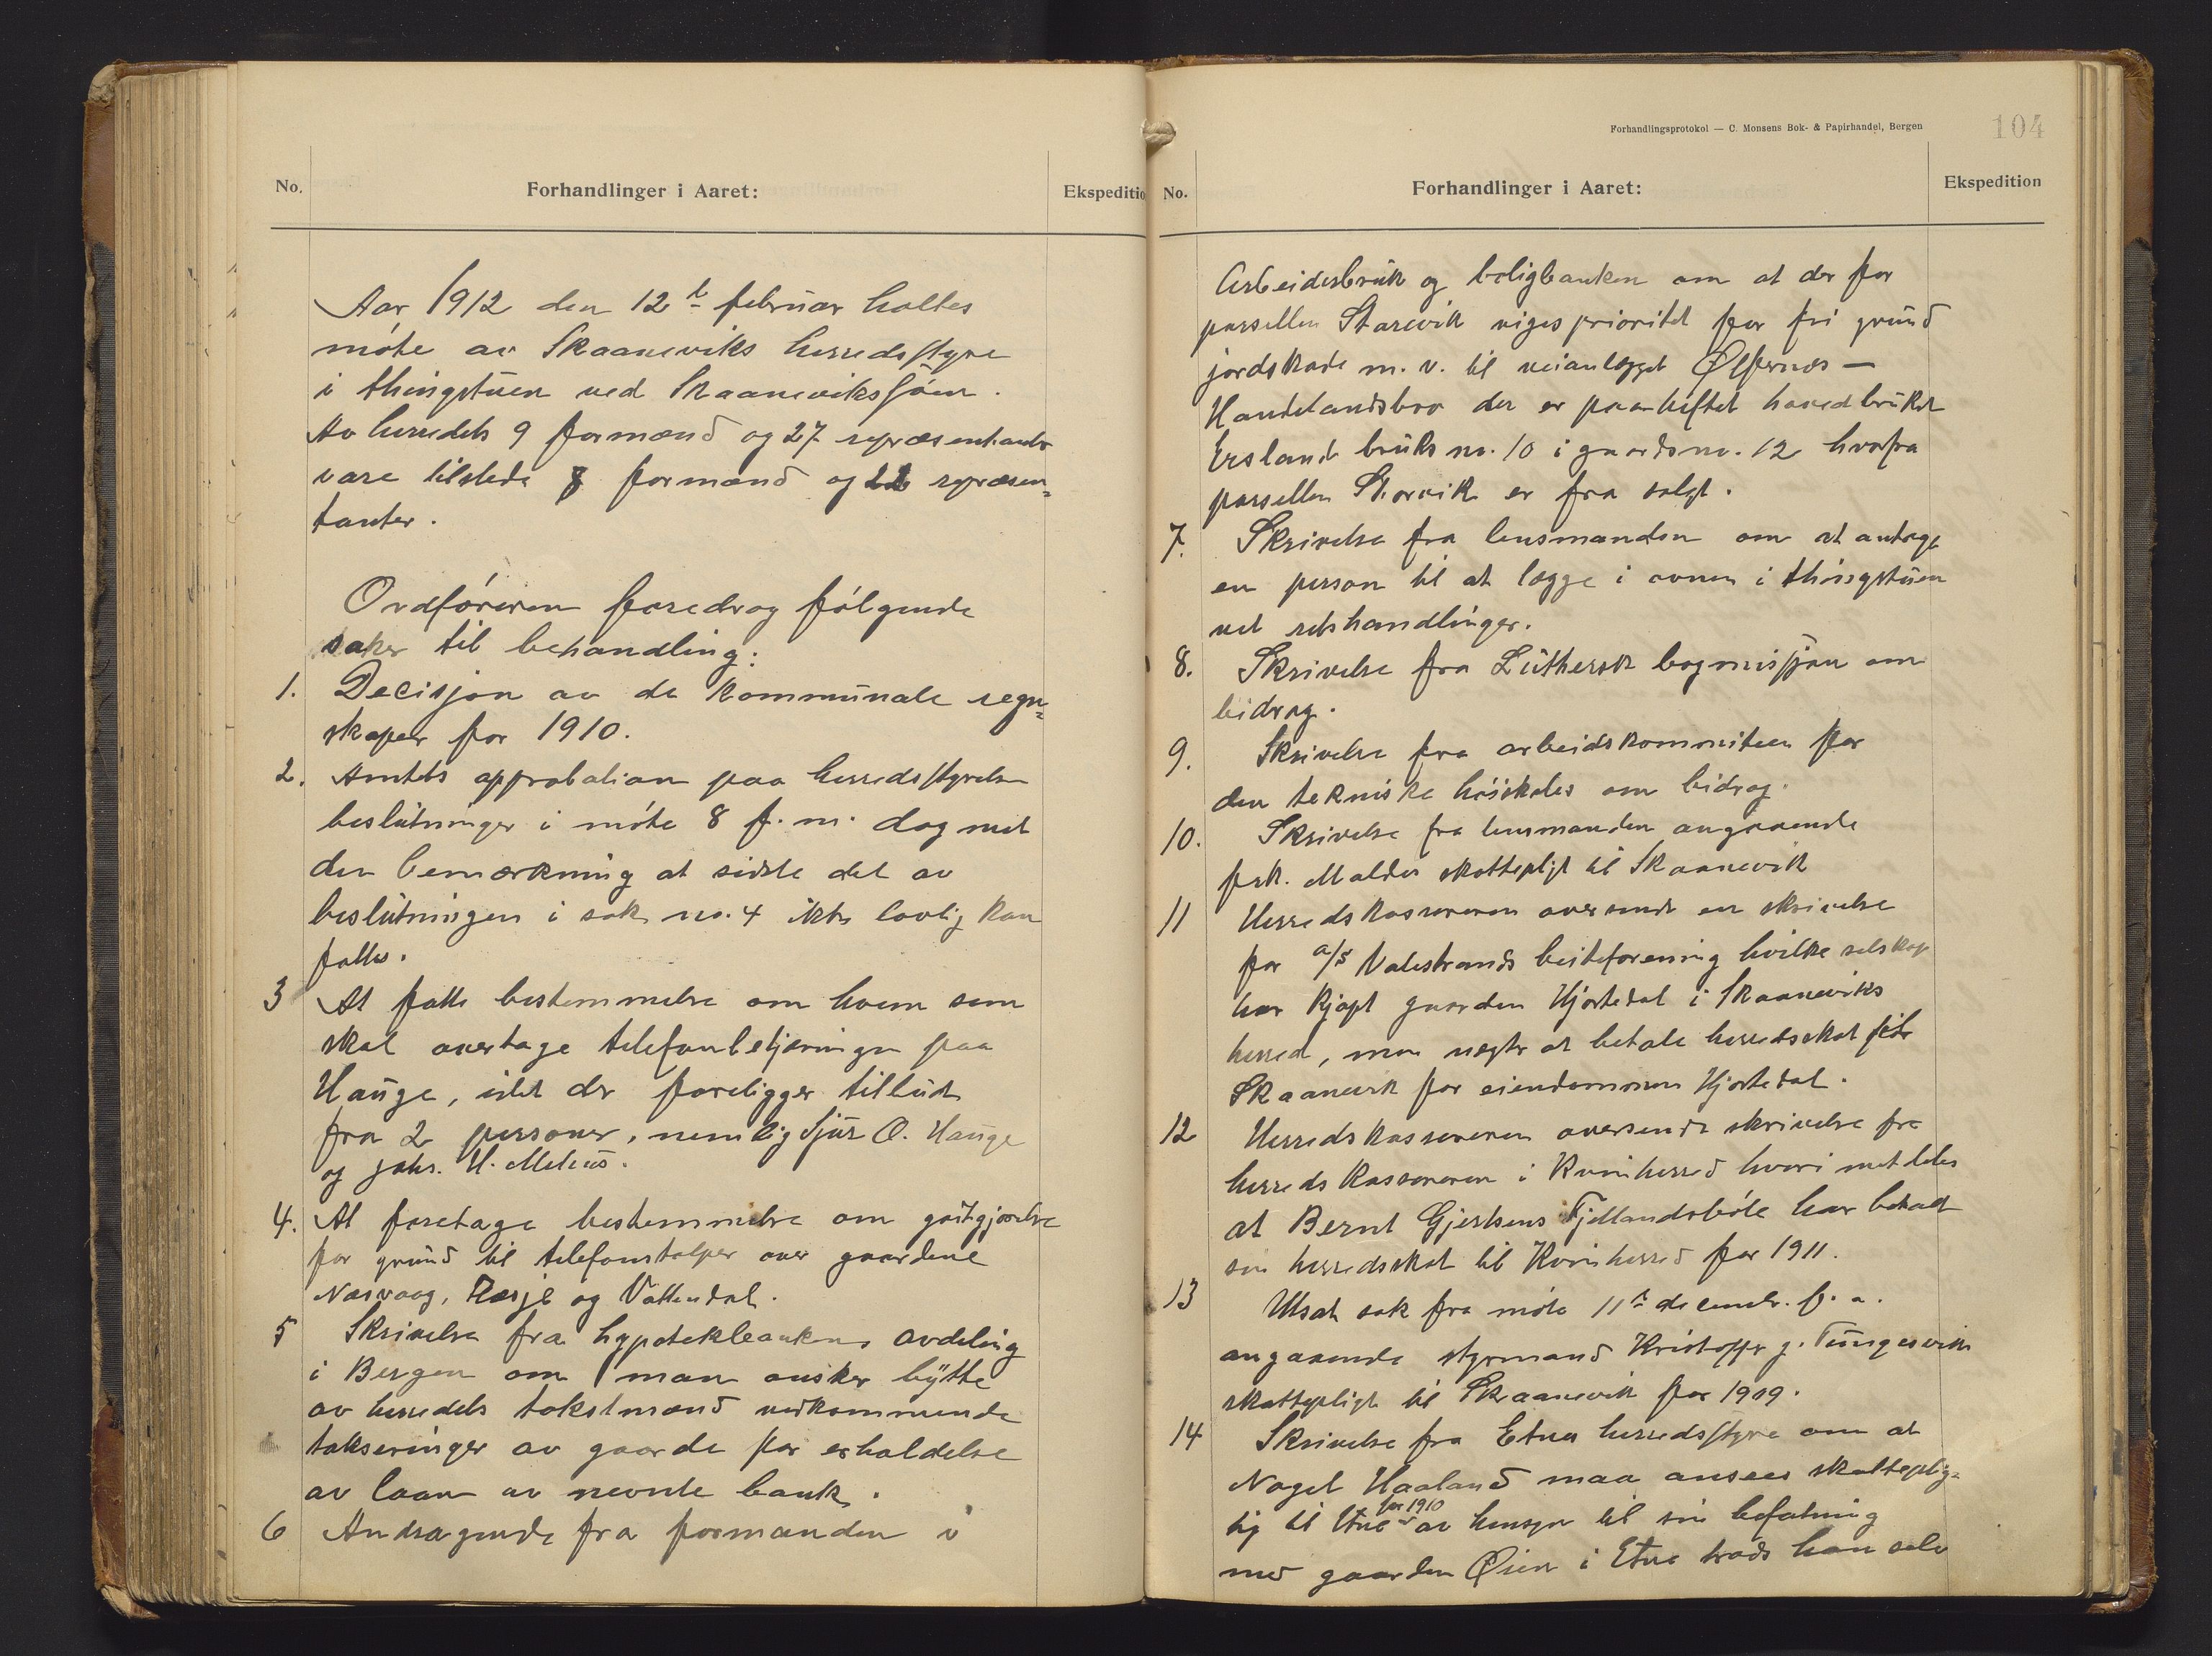 No.
Forhandlinger i Aaret:
Ekspeditio
Aar 1912 den 12te februar holtes
møte av Skaaneviks herredsstyre
i thingstuen ved Skaanevikssjøen.
Av herredets 9 formænd og 27 repræsentanter
vare tilstede 8 formænd og 22 repræsen=
tanter.
Ordføreren foredrog følgende
saker til behandling:
1. Decisjon av de kommunale regn=
skaper for 1910.
2. Amtets approbation paa herredsstyrets
beslutninger i møte 8 f. m. dog med
den bemærkning at sidste del av
beslutningen i sak no. 4 ikke lovlig kan
fattes.
3 At fatte bestemmelse om hvem som
skal overtage telefonbetjeningen paa
Hauge, idet der foreligger tilbud
fra 2 personer, nemlig Sjur O. Hauge
og Johs. H. Mehus.
4. At foretage bestemmelse om godtgjørelse
for grund til telefonstolper over gaardene
Næsvaag, Hæsje og Vattendal.
5 Skrivelse fra hypotekbankens avdeling
i Bergen om man ønsker bytte
av herredets takstmænd vedkommende
takseringer av gaarde for erholdelse
av laan av nevnte bank.
6 Andragende fra formanden i
Forhandlingsprotokol — C. Monsens Bok- & Papirhandel, Bergen
104
No.
Forhandlinger i Aaret:
Ekspedition
Arbeidersbruk og boligbanken om at der for
parsellen Storevik viges prioritet for fri grund
jordskade m. v. til veianlegget Ølfernes —
Handelandsbro der er paaheftet hovedbruket
Ersland bruks no. 10 i gaards no. 12 hvorfra
parsellen Storvik er fra solgt.
7. Skrivelse fra lensmanden om at antage
en person til at lægge i ovnen i thingstuen
ved retshandlinger.
8. Skrivelse fra Luthersk bogmissjon om
bidrag.
9. Skrivelse fra arbeidskommiteen for
den tekniske høiskoles om bidrag.
10. Skrivelse fra lensmanden angaaende
frk. Maldes skattepligt til Skaanevik
11 Herredskassereren oversendt en skrivelse
for a/s Valestrands beiteforening hvilke selskap
har kjøpt gaarden Hjortedal i Skaaneviks
herred, men negter at betale herredsskat til
Skaanevik for eiendommen Hjortedal.
12 Herredskassereren oversendt skrivelse fra
herredskassereren i Kvinherred hvori meddeles
at Bernt Gjertsens Fjellandsbøle har betalt
sin herredsskat til Kvinherred for 1911.
13 Utsat sak fra møte 11te decembr. f. a.
angaaende styrmand Kristoffer J. Tungesvik
skattepligt til Skaanevik for 1909.
14 Skrivelse fra Etne herredsstyre om at
Nagel Haaland maa ansees skatteplig=
tig til Etne for 1910 av hensyn til sin befatning
med gaarden Øien i Etne trods han selv